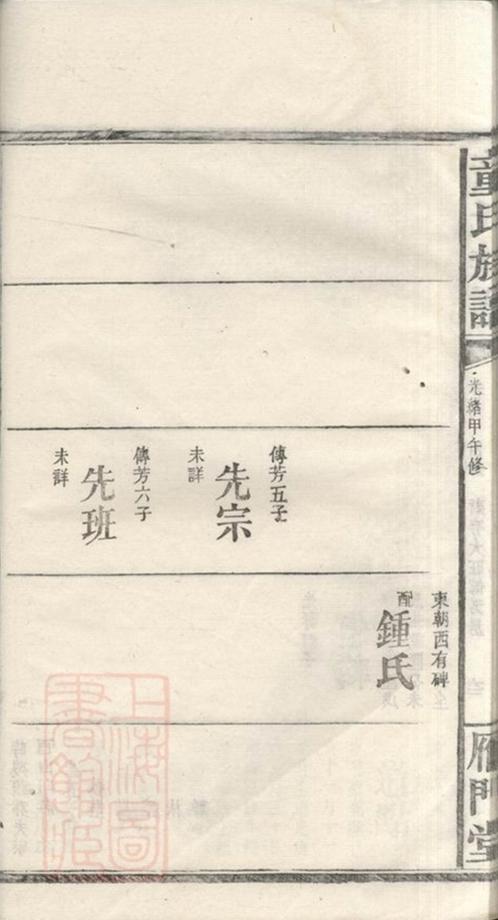 童氏族譜
光緒甲午修
雁門堂
東朝西有碑
配
鍾氏
傳芳五子
先宗
未詳
傳芳六子
先班
未詳
上海圖
書館藏